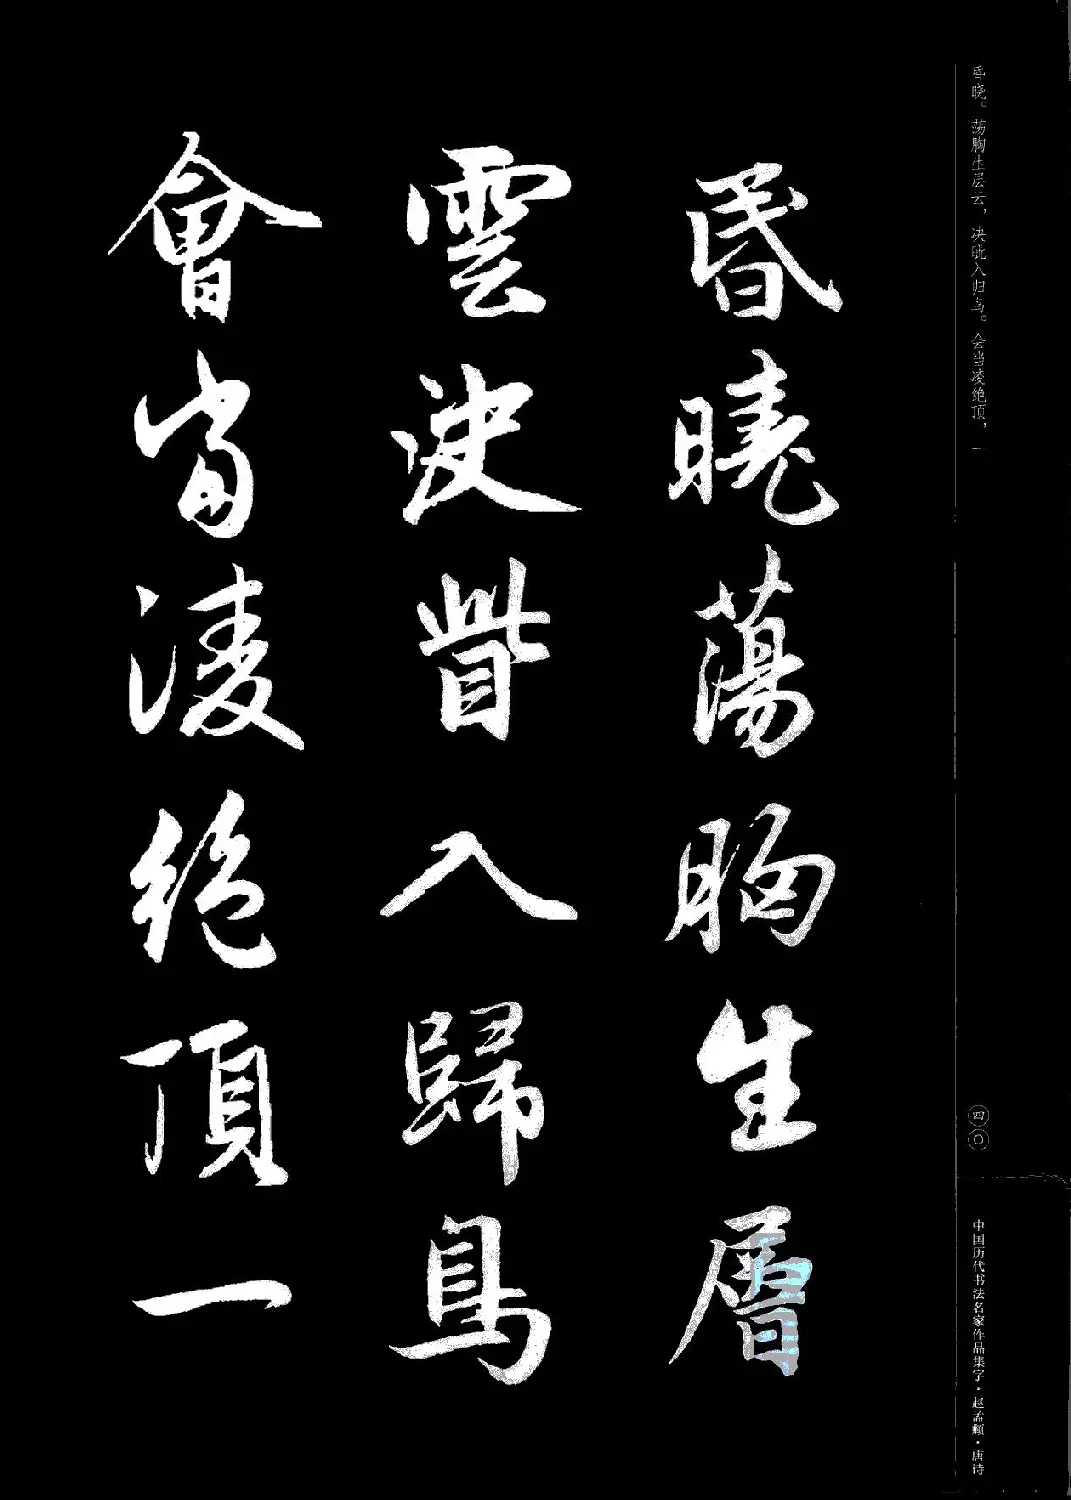 昏曉蕩胸生層
雲決眥入歸鳥
會當淩絕頂一
昏晓。荡胸生层云，决眦入归鸟。会当凌绝顶，一
四〇
中国历代书法名家作品集字·赵孟頫·唐诗